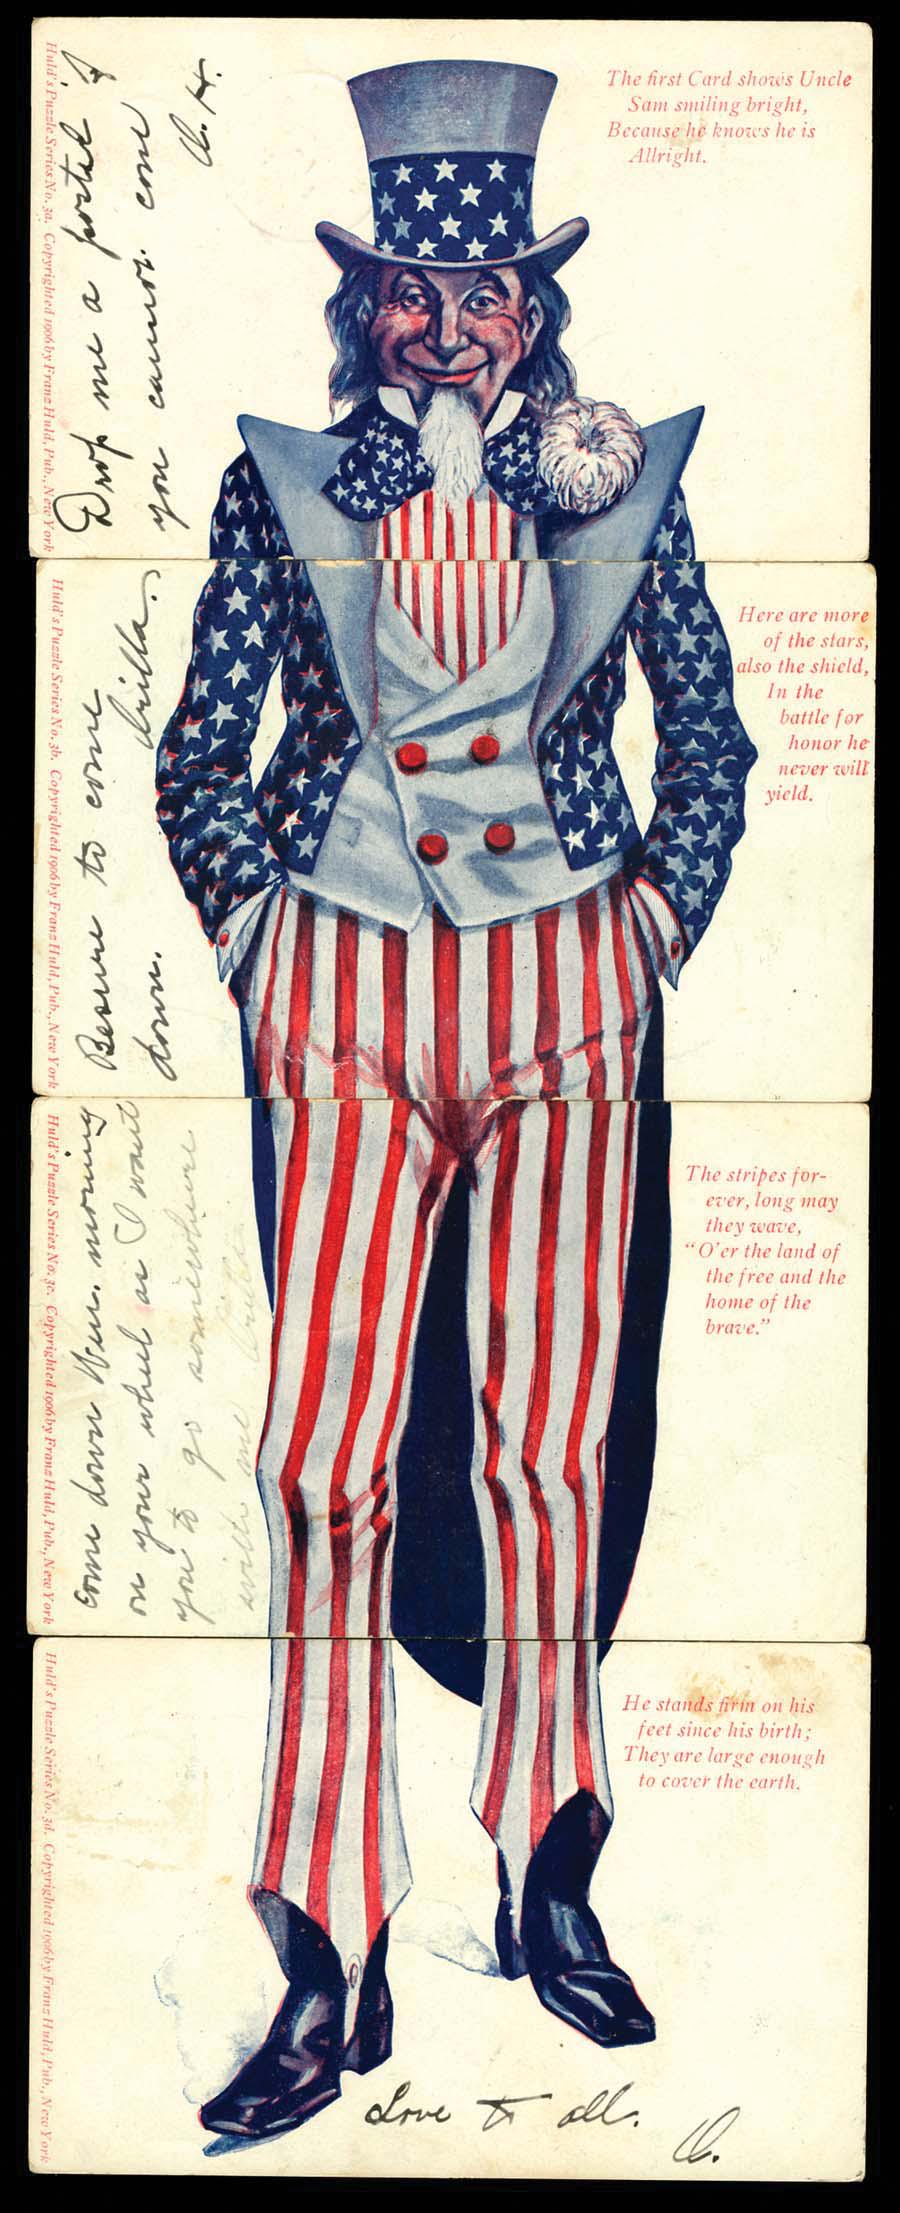 The first Card shows Uncle
Sam smiling bright,
Because he knows he is
Allright.
Huld's Puzzle Series No. 3a. Copyrighted 1906 by Franz Huld, Pub., New York
Drop me a postal if
you cannot. come
A. H.
Here are more
of the stars,
also the shield,
In the
battle for
honor he
never will
yield.
Huld's Puzzle Series No. 3b. Copyrighted 1906 by Franz Huld, Pub., New York
Besure to come
down.
The stripes for-
ever, long may
they wave,
"O'er the land of
the free and the
home of the
brave."
Huld's Puzzle Series No. 3c. Copyrighted 1906 by Franz Huld, Pub., New York
come down morning
on your wheel as I want
you to go somewhere
with me
He stands firm on his
feet since his birth;
They are large enough
to cover the earth.
Huld's Puzzle Series No. 3d. Copyrighted 1906 by Franz Huld, Pub., New York
Love to all.